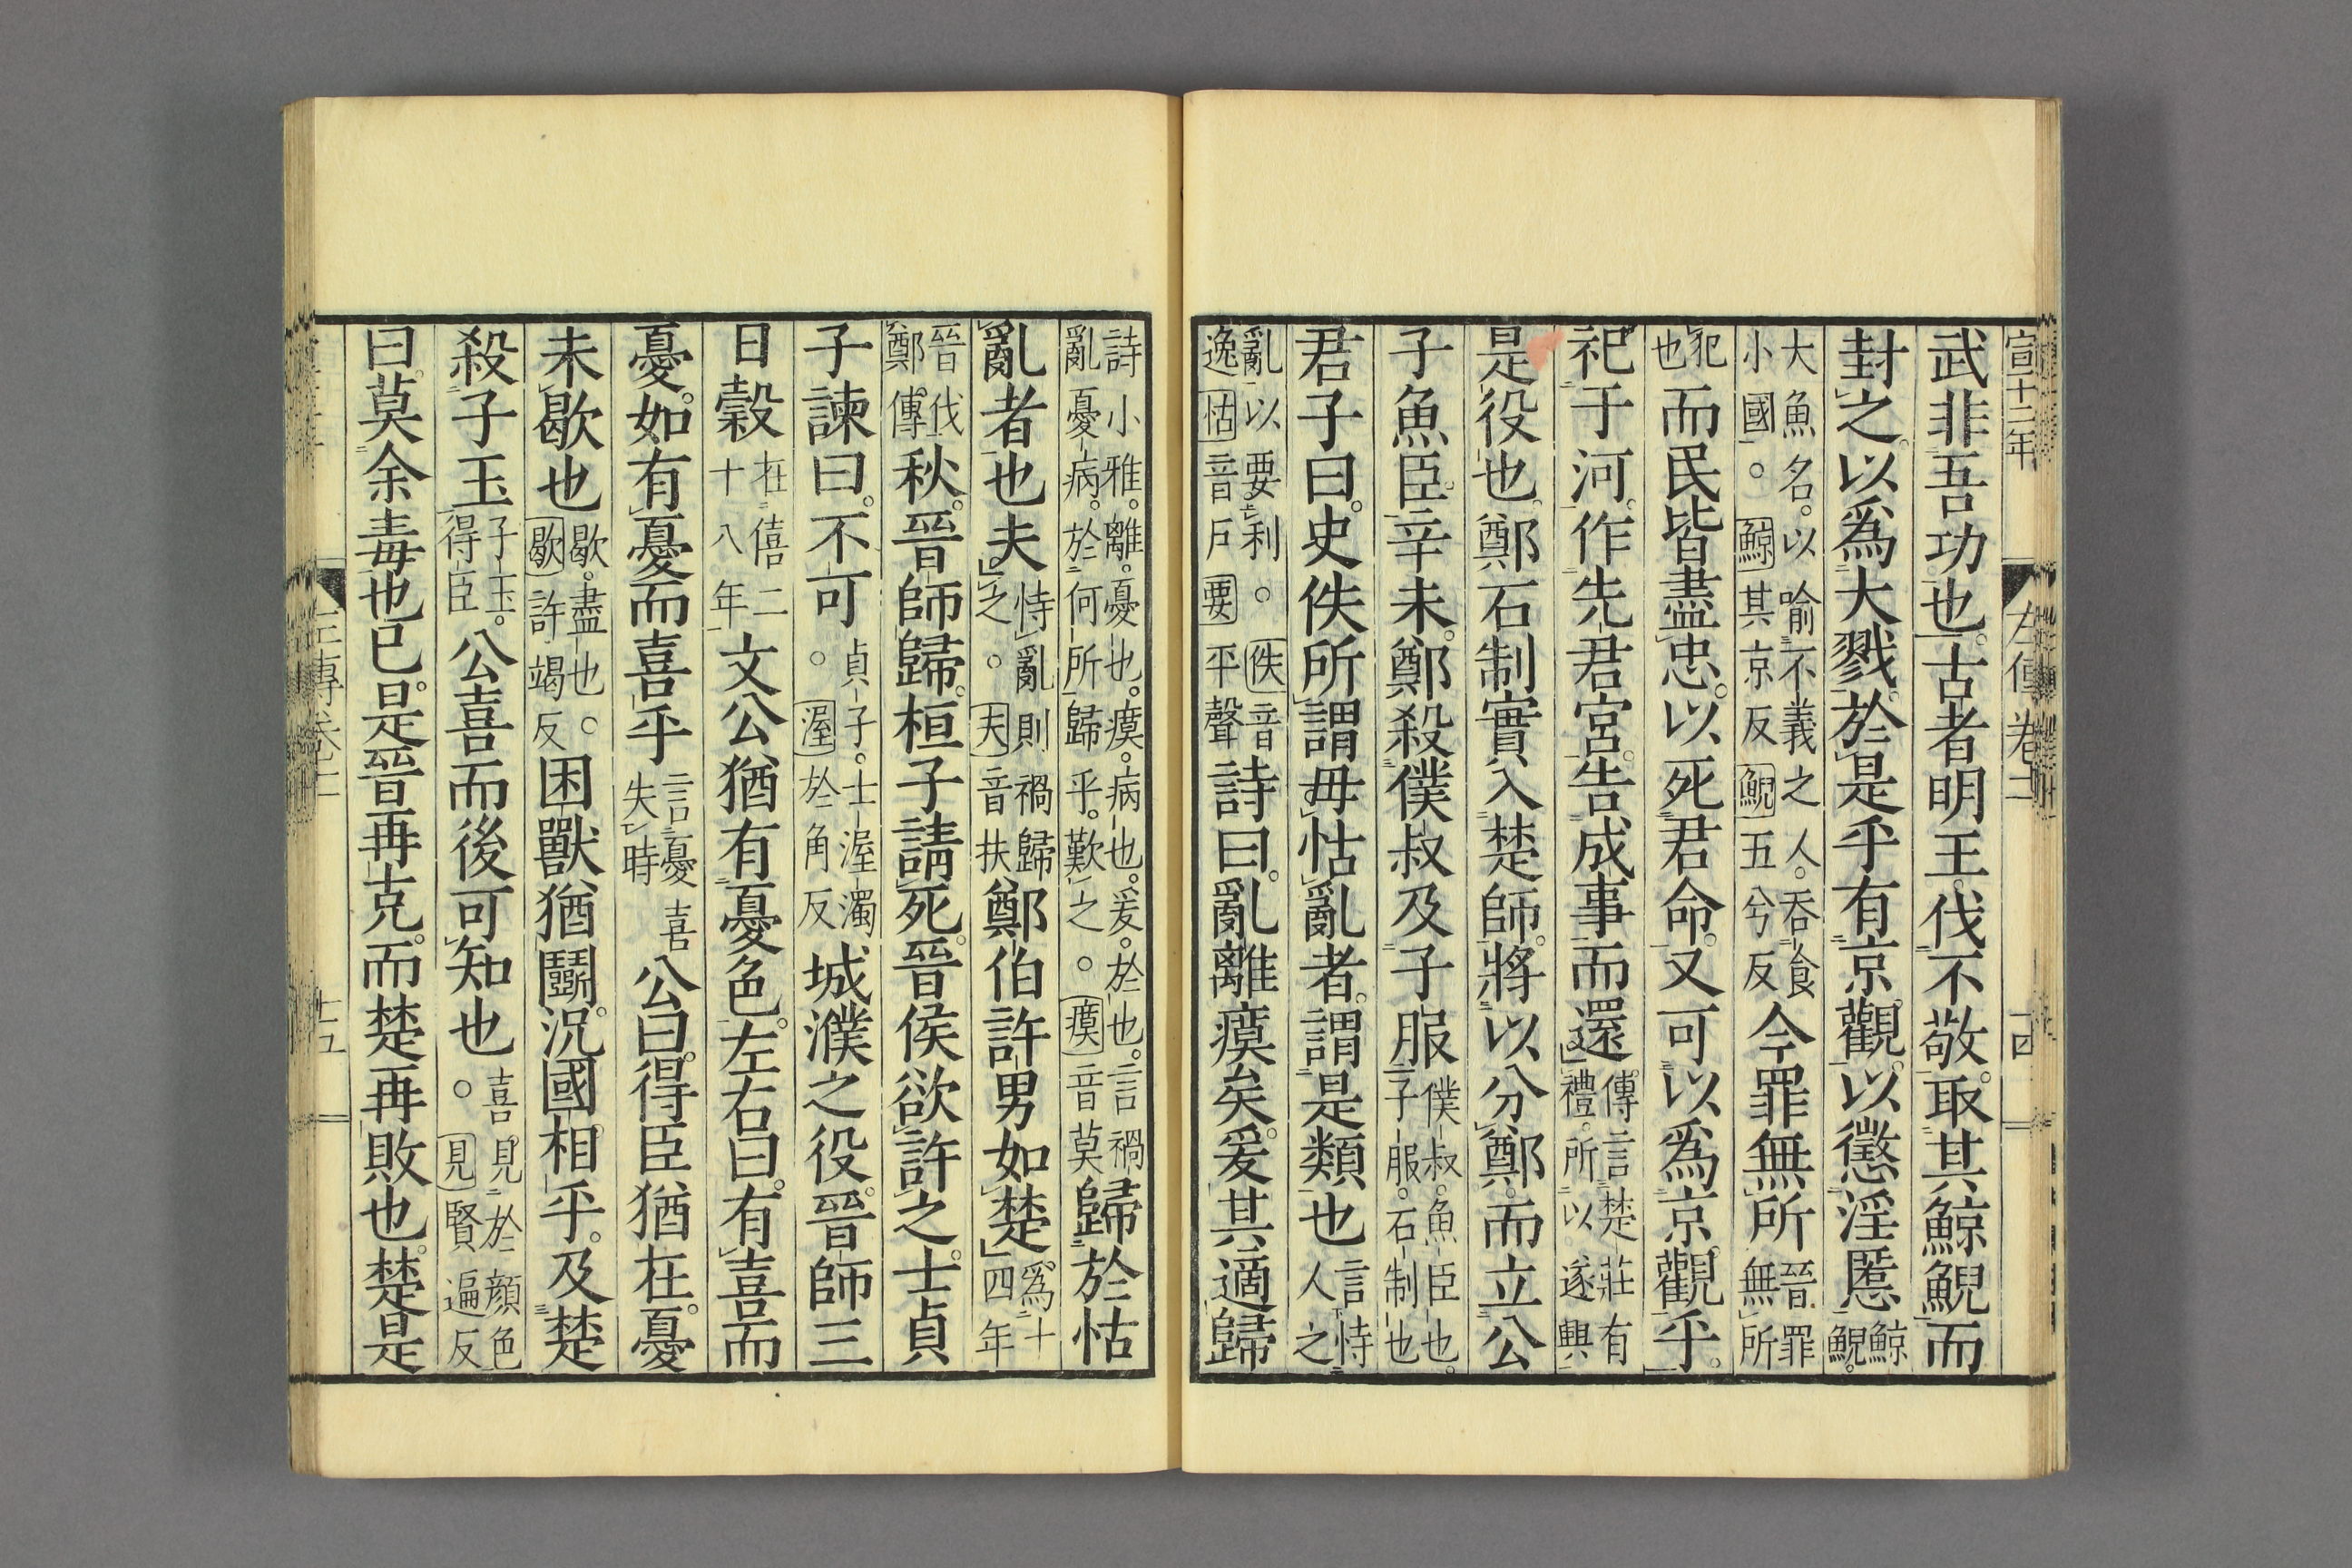 宣十二年 左傳卷十一
武非吾功也。古者明王。伐不敬。取其鯨鯢而
封之。以爲大戮。於是乎有京觀。以懲淫慝鯨鯢。
大魚名。以喻不義之人。吞食小國。鯨其京反鯢五兮反今罪無所晉罪無所
犯也而民皆盡忠。以死君命。又可以爲京觀乎。
祀于河。作先君宮。告成事而還傳言楚莊有禮。所以遂興
是役也。鄭石制實入楚師。將以分鄭。而立公
子魚臣。辛未。鄭殺僕叔及子服僕叔。魚臣也。子服。石制也
君子曰。史佚所謂毋怙亂者。謂是類也言恃人之
亂以要利。佚音逸怙音戶要平聲詩曰。亂離瘼矣。爰其適歸
詩小雅。離。憂也。瘼。病也。爰。於也。言禍亂憂病。於何所歸乎。歎之。瘼音莫歸於怙
亂者也夫。恃亂則禍歸之。夫音扶鄭伯許男如楚爲十四年
晉伐鄭傳秋。晉師歸。桓子請死。晉侯欲許之。士貞
子諫曰。不可貞子。士渥濁。渥於角反城濮之役。晉師三
日穀在僖二十八年文公猶有憂色。左右曰。有喜而
憂。如有憂而喜乎言憂喜失時公曰。得臣猶在。憂
未歇也歇。盡也。歇許竭反困獸猶鬭。況國相乎。及楚
殺子玉子玉。得臣公喜而後可知也喜見於顏色。見賢遍反
曰。莫余毒也已。是晉再克。而楚再敗也。楚是
十五